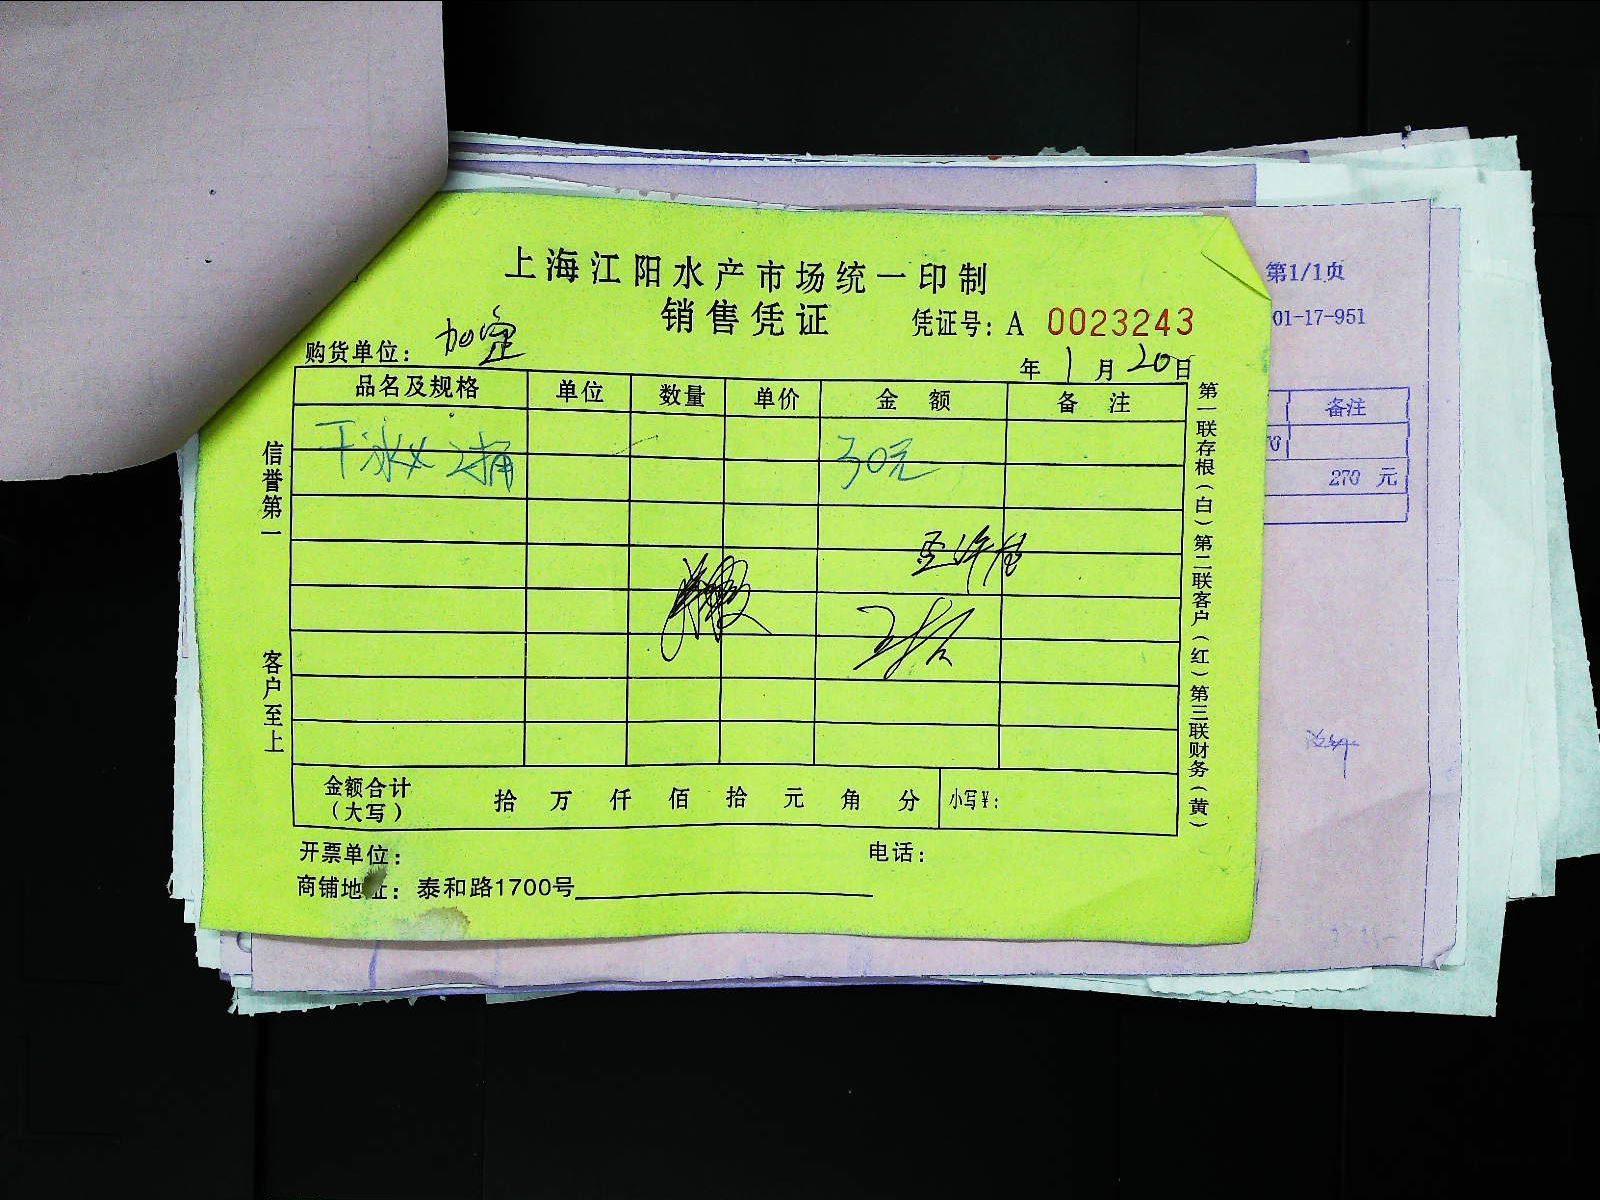 上海江阳水产市场统一印制
销售凭证
凭证号：A 0023243
购货单位：加
年 1 月 20 日
品名及规格 单位 数量 单价 金额 备注
干冰 2桶 30元
信誉第一
客户至上
第一联存根（白）第二联客户（红）第三联财务（黄）
金额合计（大写） 拾 万 仟 佰 拾 元 角 分 小写¥：
开票单位： 电话：
商铺地址：泰和路1700号
第1/1页
01-17-951
备注
270 元